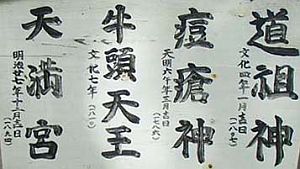 道祖神
文化四年一月吉日
(一八〇七)
疱瘡神
天明六年三月吉日
(一七八六)
牛頭天王
文化七年
(一八一〇)
天満宮
明治廿七年十二月吉日
(一八九四)